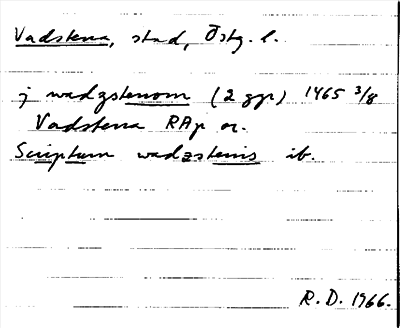 Vadstena, stad, Östg. l.
j wadzstenom (2 ggr) 1465 3/8
Vadstena RAp or.
Scriptum wadzstenis ib.
R.D. 1966.